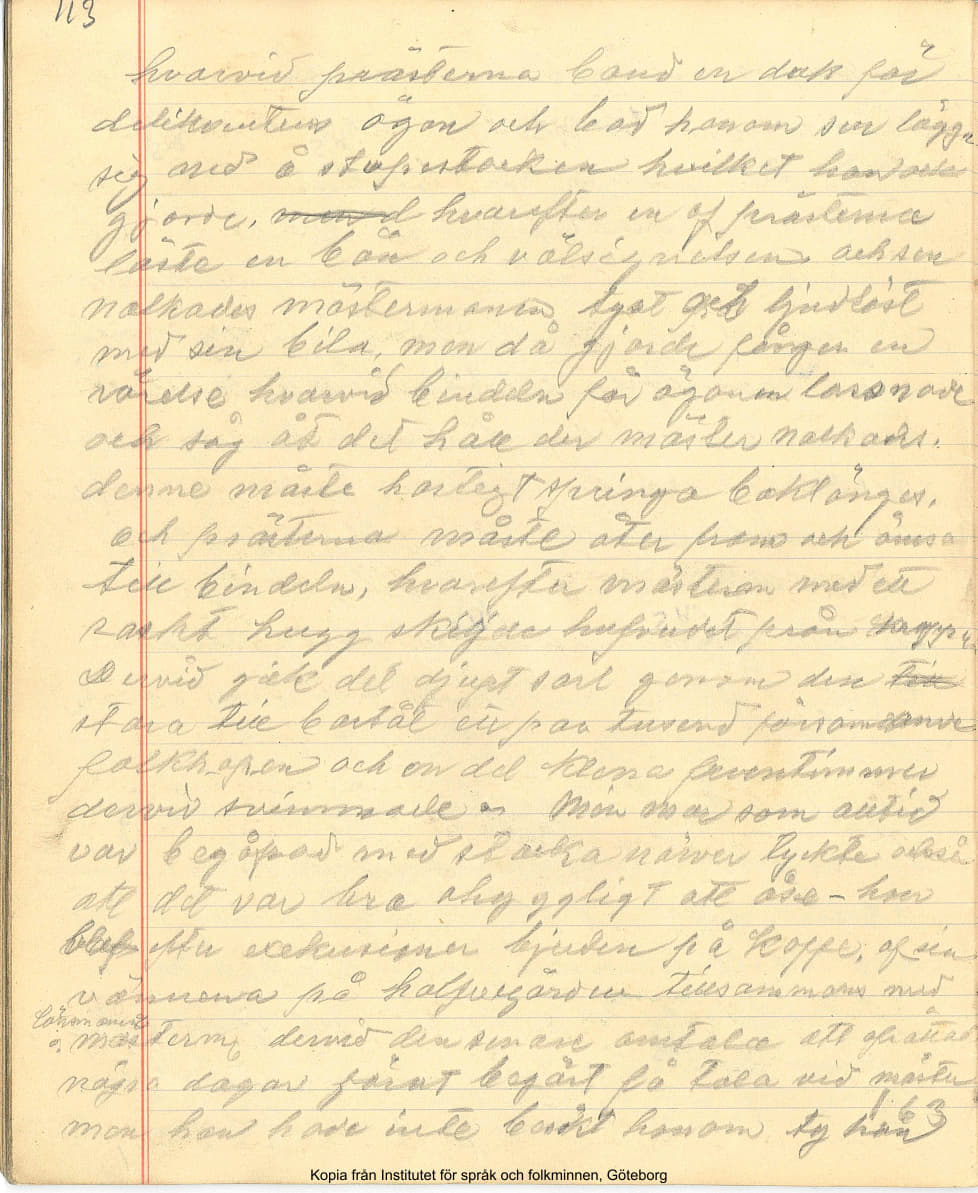 113
hvarvid prästerna band en duk för
delikventens ögon och bad honom sen lägga
sig ned å stupestocken hvilket han ock
gjorde, hvarefter en af prästerna
läste en bön och välsignelsen och sen
nalkades mästermannen tyst och ljudlöst
med sin bila, men då gjorde fången en
rörelse hvarvid bindeln för ögonen lossnade
och såg åt det håll der mäster nalkades.
denne måste hastigt springa baklänges,
och prästerna måste åter fram och
till bindeln, hvarefter mästeren med ett
raskt hugg skilde hufvudet från kroppen
Dervid gick det djupt sorl genom den
stora till bortåt ett par tusend församlade
folkhopen och en del klena fruntimmer
dervid svimmade Min mor som alltid
var begåfvad med starka närver tyckte också
att det var bra ohyggligt att åse – hon
blef efter exekusionen bjuden på Kaffe, af sin
vännerna på halfvegården tillsammans med
länsmannen
o. mästerm, dervid den senare omtalade att
några dagar förut begärt få tala vid mäster
man han hade inte besökt honom ty han
113
Kopia från Institutet för språk och folkminnen, Göteborg